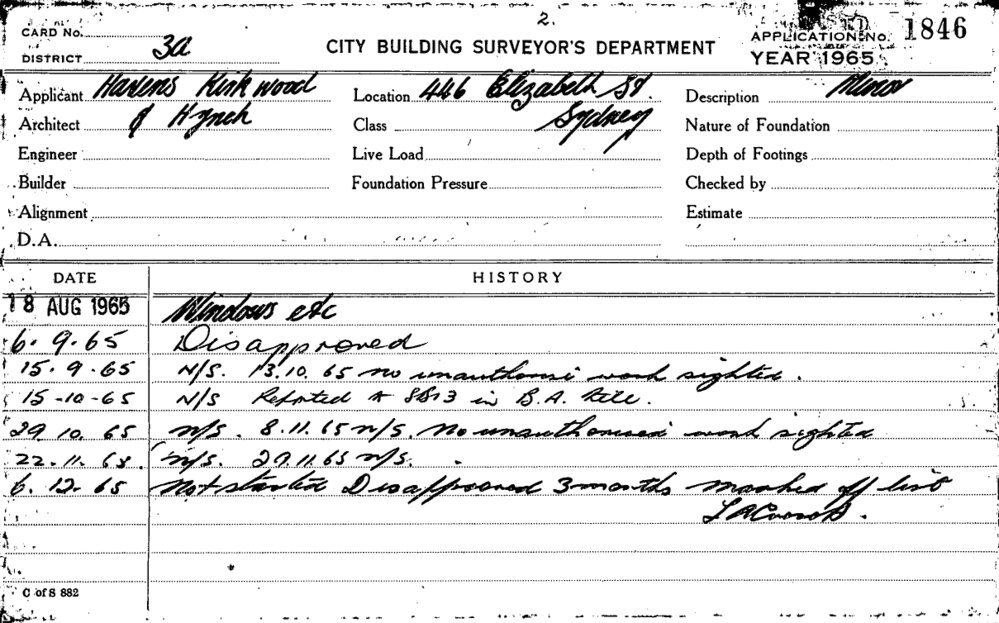 2.
CARD No.
APPLICATION No. 1846
DISTRICT 3a
CITY BUILDING SURVEYOR'S DEPARTMENT
YEAR 1965
Applicant Kirkwood
Location 446 Elizabeth St.
Description Minor
Architect & Hynch
Class Sydney
Nature of Foundation
Engineer
Live Load
Depth of Footings
Builder
Foundation Pressure
Checked by
Alignment
Estimate
D.A.
DATE HISTORY
18 AUG 1965 Windows etc
6.9.65 Disapproved
15.9.65 N/S. 13.10.65 no work sighted.
15-10-65 N/S Reported in B.A. file.
29.10.65 n/s. 8.11.65 n/s. No unauthorised work sighted
22.11.65. n/s. 29.11.65 n/s.
6.12.65 Not started Disapproved 3 months marked off list
C of S 882